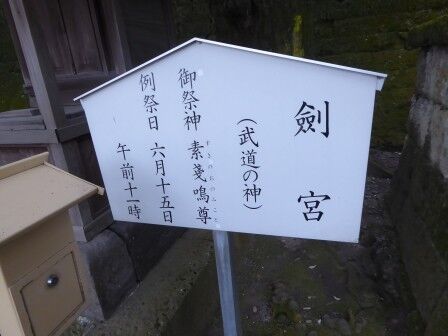 劍宮
(武道の神)
御祭神 素戔嗚尊
すさのおのみこと
例祭日 六月十五日
午前十一時